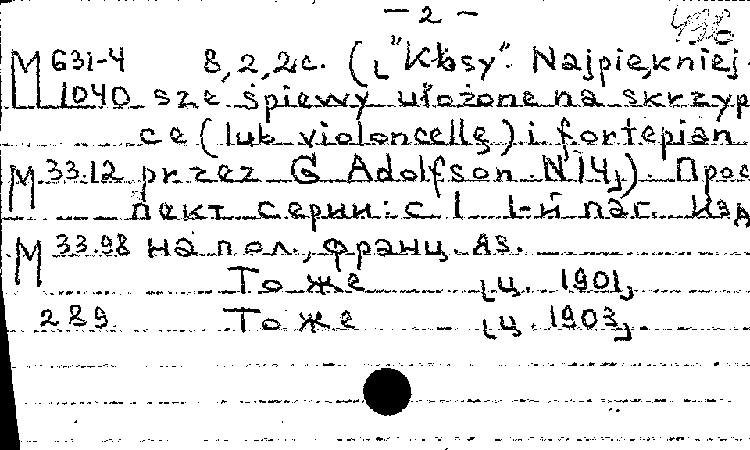 — 2 —
M 631-4 8, 2, 2 с. ([„Kłosy". Najpiękniej-
1040 sze śpiewy ułożone na skrzyp
ce (lub violoncellę) i fortepian
M 33.12 przez G Adolfson. N 14]). Прос
пект серии: с 1 1-й паг. Изд
M 33.98 на пол., франц. яз.
То же [ц. 1901]
289 То же [ц. 1903].